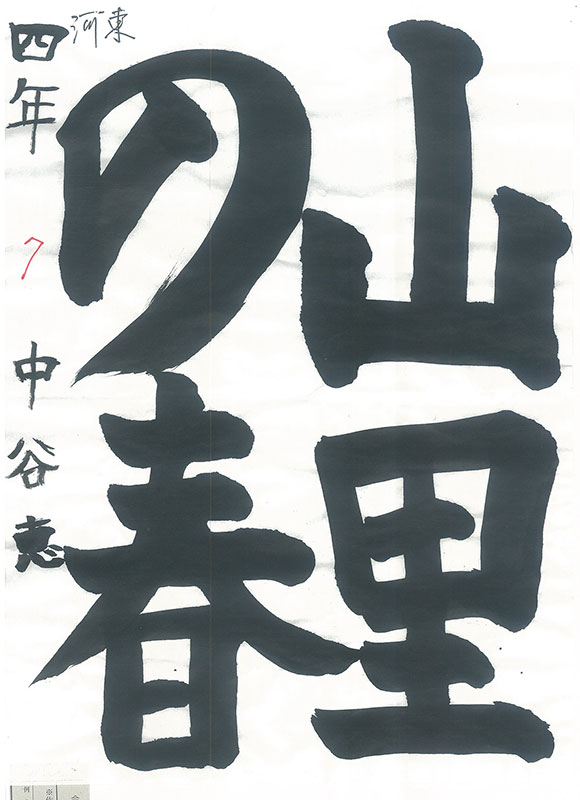 山里
の春
河東
四年
7
中谷恵